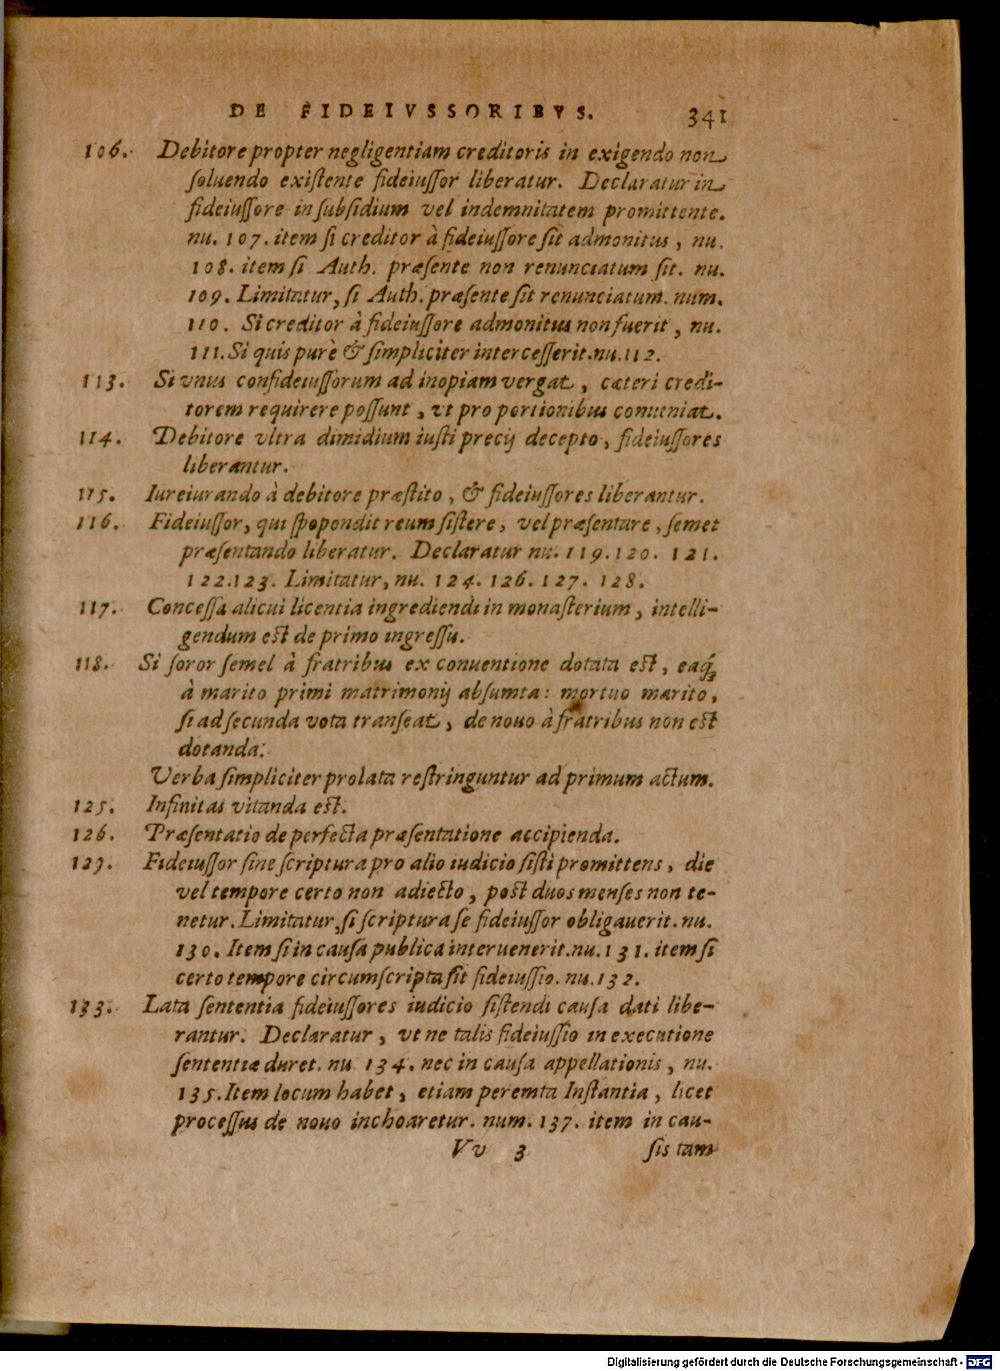 DE FIDEIVSSORIBVS. 341
106. Debitore propter negligentiam creditoris in exigendo non
ſoluendo exiſtente fideiuſſor liberatur. Declaratur in
fideiuſſore in ſubſidium vel indemnitatem promittente.
nu. 107. item ſi creditor à fideiuſſore ſit admonitus, nu.
108. item ſi Auth. præſente non renunciatum ſit. nu.
109. Limitatur, ſi Auth. præſente ſit renunciatum. num.
110. Si creditor à fideiuſſore admonitus non fuerit, nu.
111. Si quis purè & ſimpliciter interceſſerit. nu. 112.
113. Si vnus confideiuſſorum ad inopiam vergat, cæteri credi-
torem requirere poſſunt, vt pro portionibus conueniat.
114. Debitore vltra dimidium iuſti precij decepto, fideiuſſores
liberantur.
115. Iureiurando à debitore præſtito, & fideiuſſores liberantur.
116. Fideiuſſor, qui ſpopondit reum ſiſtere, vel præſentare, ſemet
præſentando liberatur. Declaratur nu. 119. 120. 121.
122. 123. Limitatur, nu. 124. 126. 127. 128.
117. Conceſſa alicui licentia ingrediendi in monaſterium, intelli-
gendum eſt de primo ingreſſu.
118. Si ſoror ſemel à fratribus ex conuentione dotata eſt, eaq́;
à marito primi matrimonij abſumta: mortuo marito,
ſi ad ſecunda vota tranſeat, de nouo à fratribus non eſt
dotanda.
Verba ſimpliciter prolata reſtringuntur ad primum actum.
125. Infinitas vitanda eſt.
126. Præſentatio de perfecta præſentatione accipienda.
129. Fideiuſſor ſine ſcriptura pro alio iudicio ſiſti promittens, die
vel tempore certo non adiecto, poſt duos menſes non te-
netur. Limitatur, ſi ſcriptura ſe fideiuſſor obligauerit. nu.
130. Item ſi in cauſa publica interuenerit. nu. 131. item ſi
certo tempore circumſcripta ſit fideiuſſio. nu. 132.
133. Lata ſententia fideiuſſores iudicio ſiſtendi cauſa dati libe-
rantur. Declaratur, vt ne talis fideiuſſio in executione
ſententiæ duret. nu 134. nec in cauſa appellationis, nu.
135. Item locum habet, etiam peremta Inſtantia, licet
proceſſus de nouo inchoaretur. num. 137. item in cau-
Vv 3 ſis tam
Digitalisierung gefördert durch die Deutsche Forschungsgemeinschaft - DFG